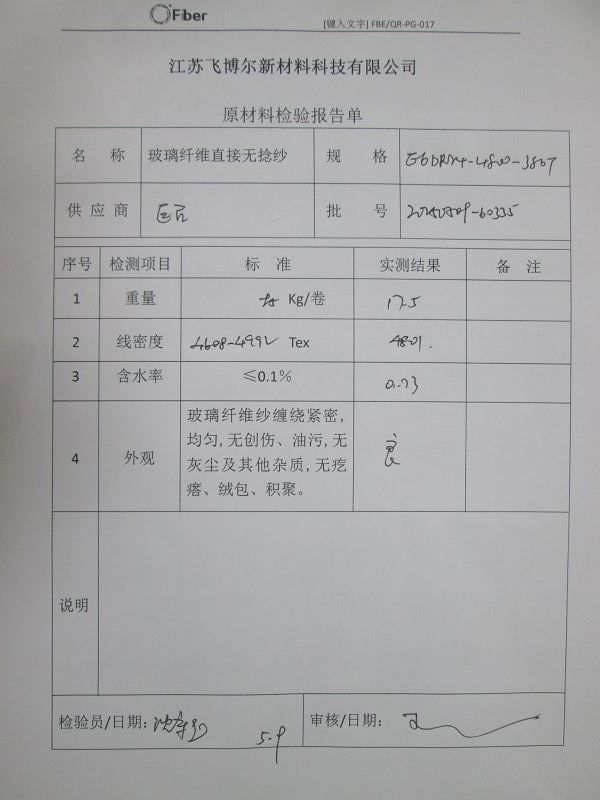 Fiber
[键入文字] FBE/QR-PG-017
江苏飞博尔新材料科技有限公司
原材料检验报告单
名 称 玻璃纤维直接无捻纱 规 格
供 应 商 巨石 批 号
序号 检测项目 标 准 实测结果 备 注
1 重量 Kg/卷 17.5
2 线密度 4608-4992 Tex 4801.
3 含水率 ≤0.1%
4 外观 玻璃纤维纱缠绕紧密,
均匀,无创伤、油污,无
灰尘及其他杂质,无疙
瘩、绒包、积聚。
良
说明
检验员/日期: 5.9 审核/日期: